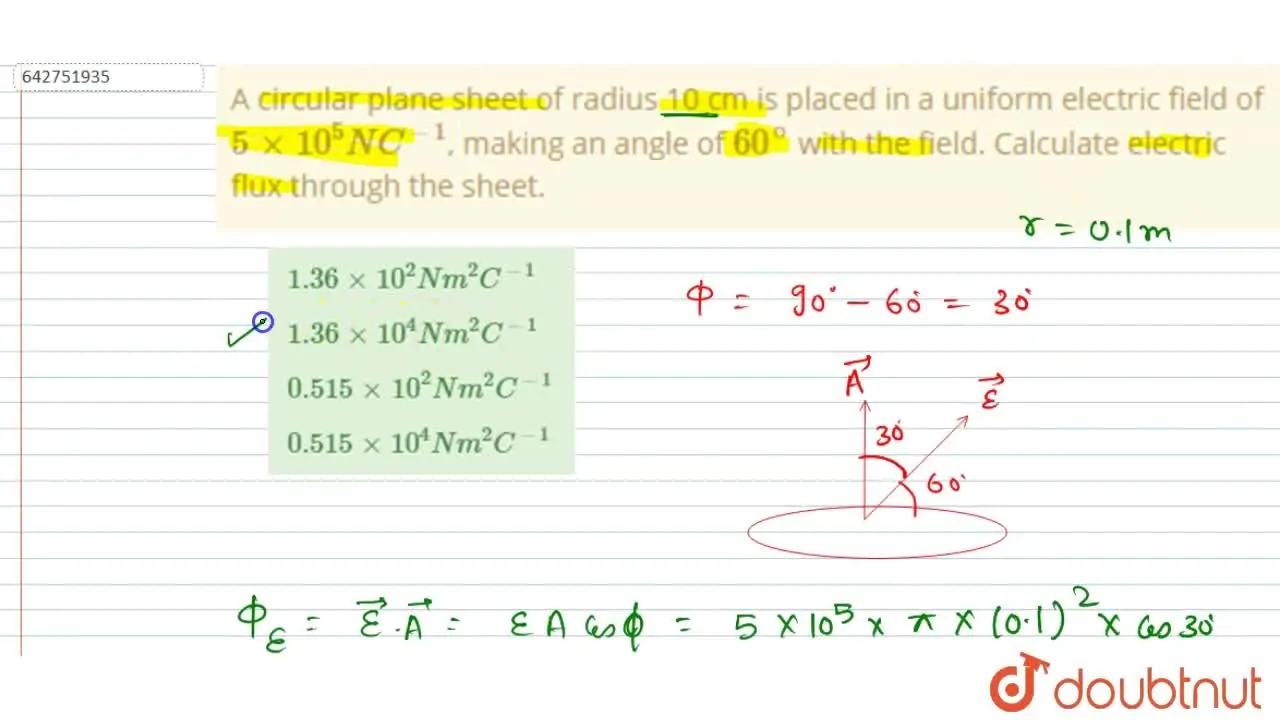 642751935
A circular plane sheet of radius 10 cm is placed in a uniform electric field of
5 × 10⁵NC⁻¹, making an angle of 60° with the field. Calculate electric
flux through the sheet.
r = 0.1m
1.36 × 10²Nm²C⁻¹
ϕ = 90° − 60° = 30°
1.36 × 10⁴Nm²C⁻¹
0.515 × 10²Nm²C⁻¹
0.515 × 10⁴Nm²C⁻¹
A⃗
ε⃗
30°
60°
ϕ_ε = ε⃗.A⃗ = εA cosϕ = 5 × 10⁵ × π × (0.1)² × cos 30°
doubtnut